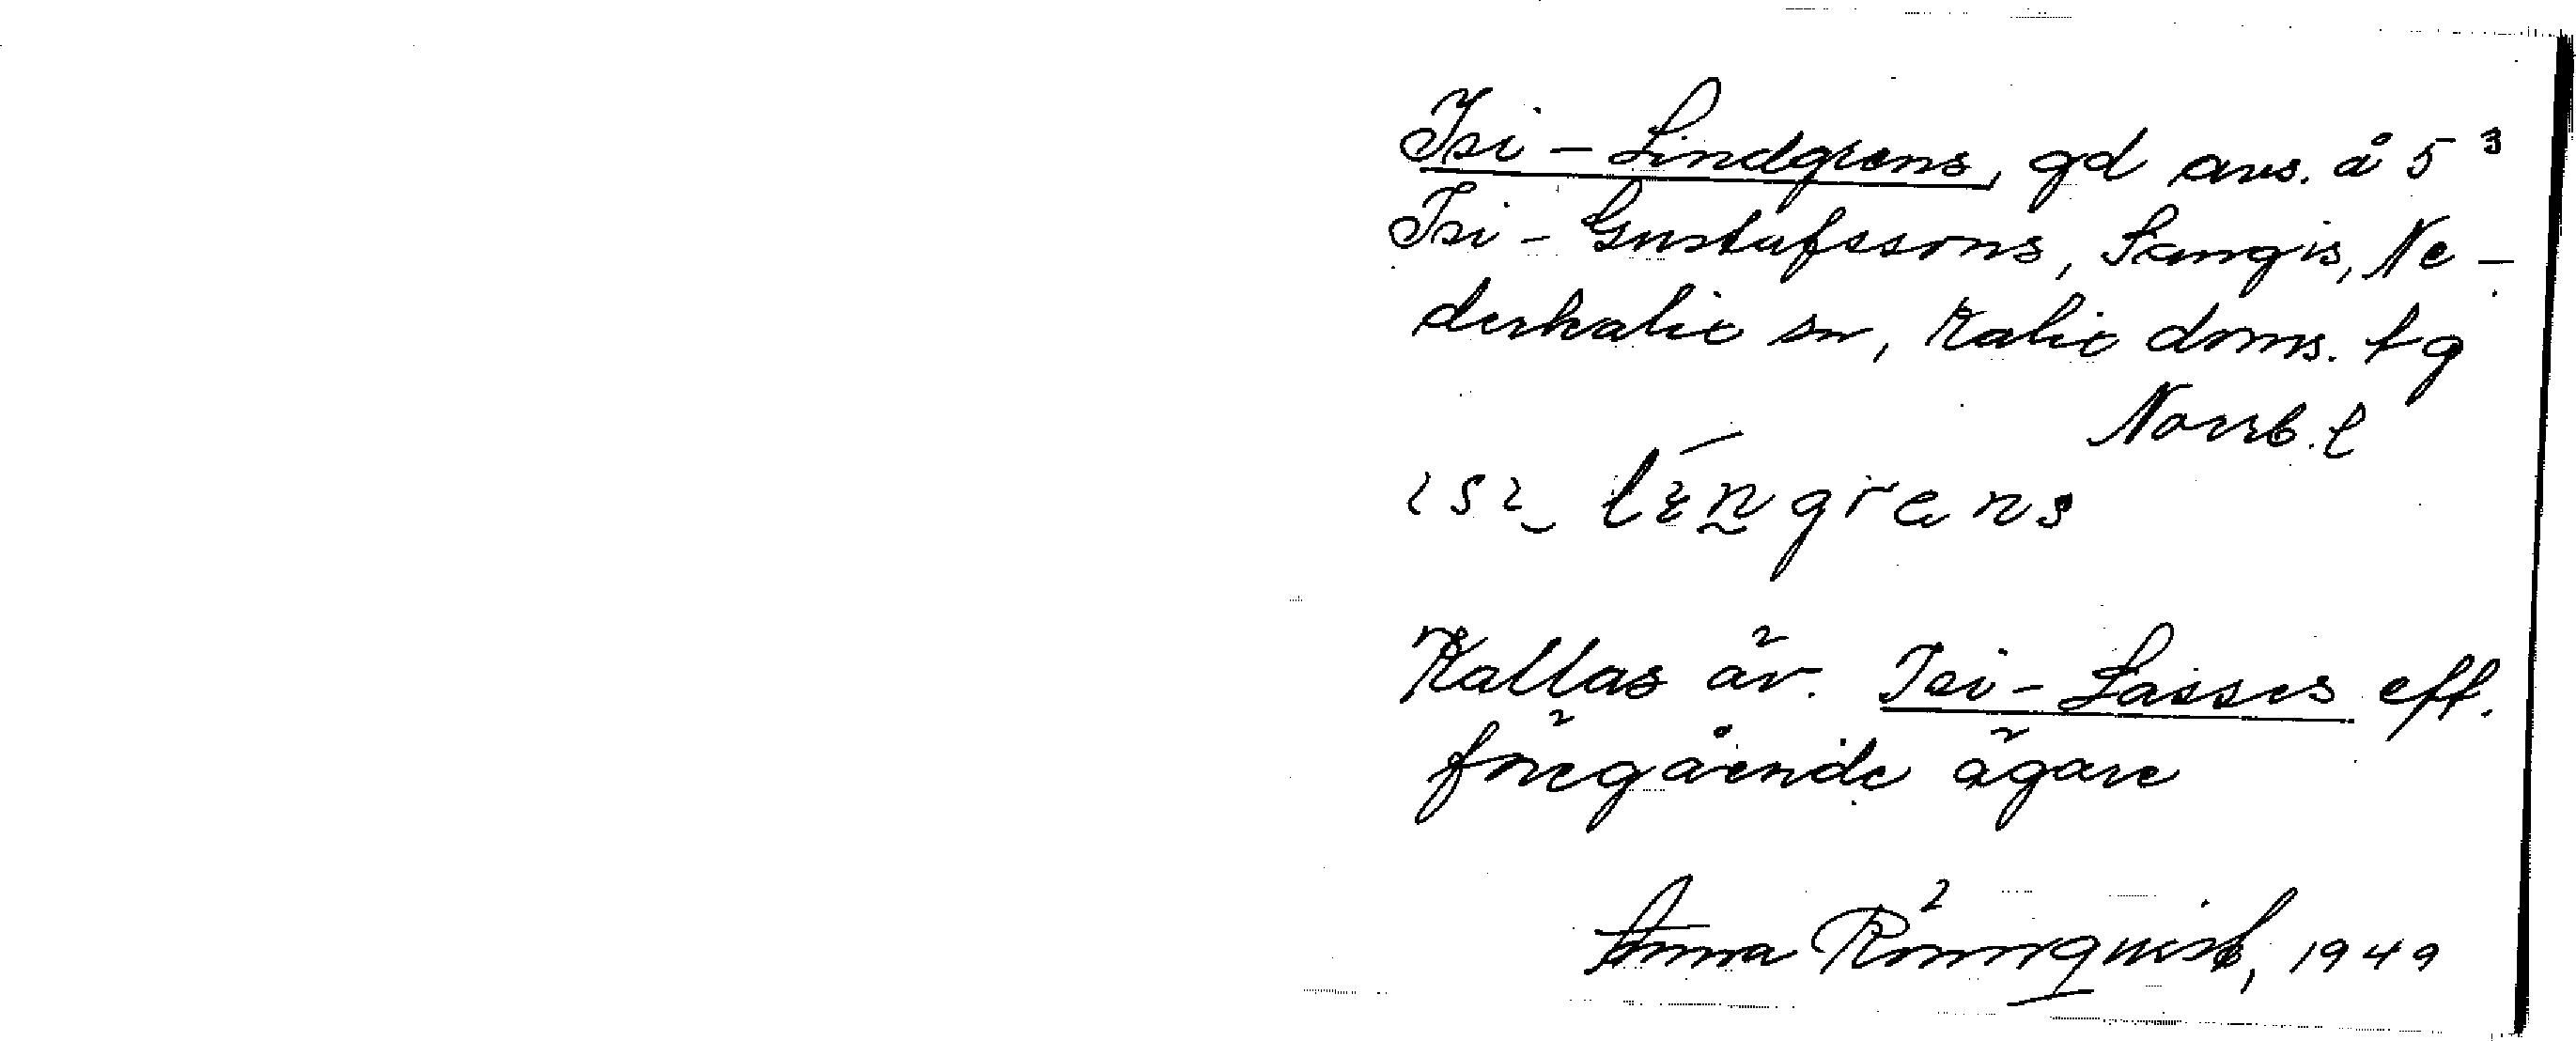 Isi-Lindgrens, gd avs. å 5³
Isi-Gustafssons, Sangis, Ne-
derkalix sn, Kalix doms. tg
Norrb. l
ısı léngrens
Kallas äv. Isi-Lasses eft.
föregående ägare
Anna Rönnquist, 1949